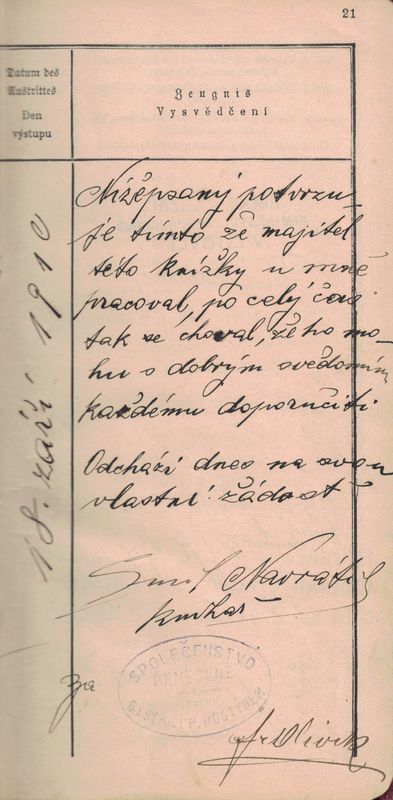 21
Datum des
Austrittes
Den
výstupu
Zeugnis
Vysvědčení
18. září 1910
Nížepsaný potvrzu-
je tímto že majitel
této knížky u mně
pracoval, po celý čas
tak se choval, že ho mo-
hu s dobrým svědomím
každému doporučiti
Odchází dnes na svou
vlastní žádost
Emil Navrátil
knihař
Za
SPOLEČENSTVO
ŘEMESLNÉ
BYSTŘICI P. HOSTÝNEM